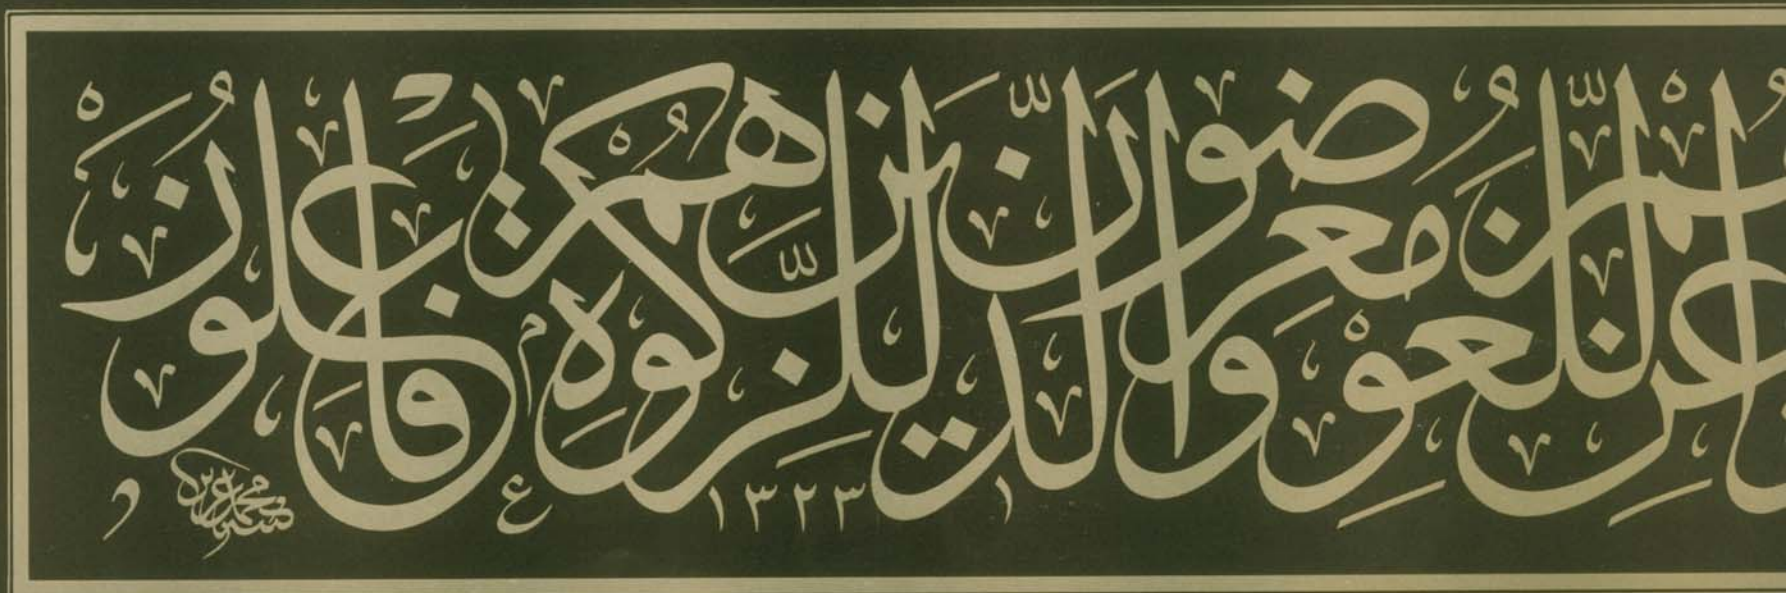 عَنِ اللَّغْوِ مُعْرِضُونَ وَالَّذِينَ هُمْ لِلزَّكَوةِ فَاعِلُونَ
١٣٢٣